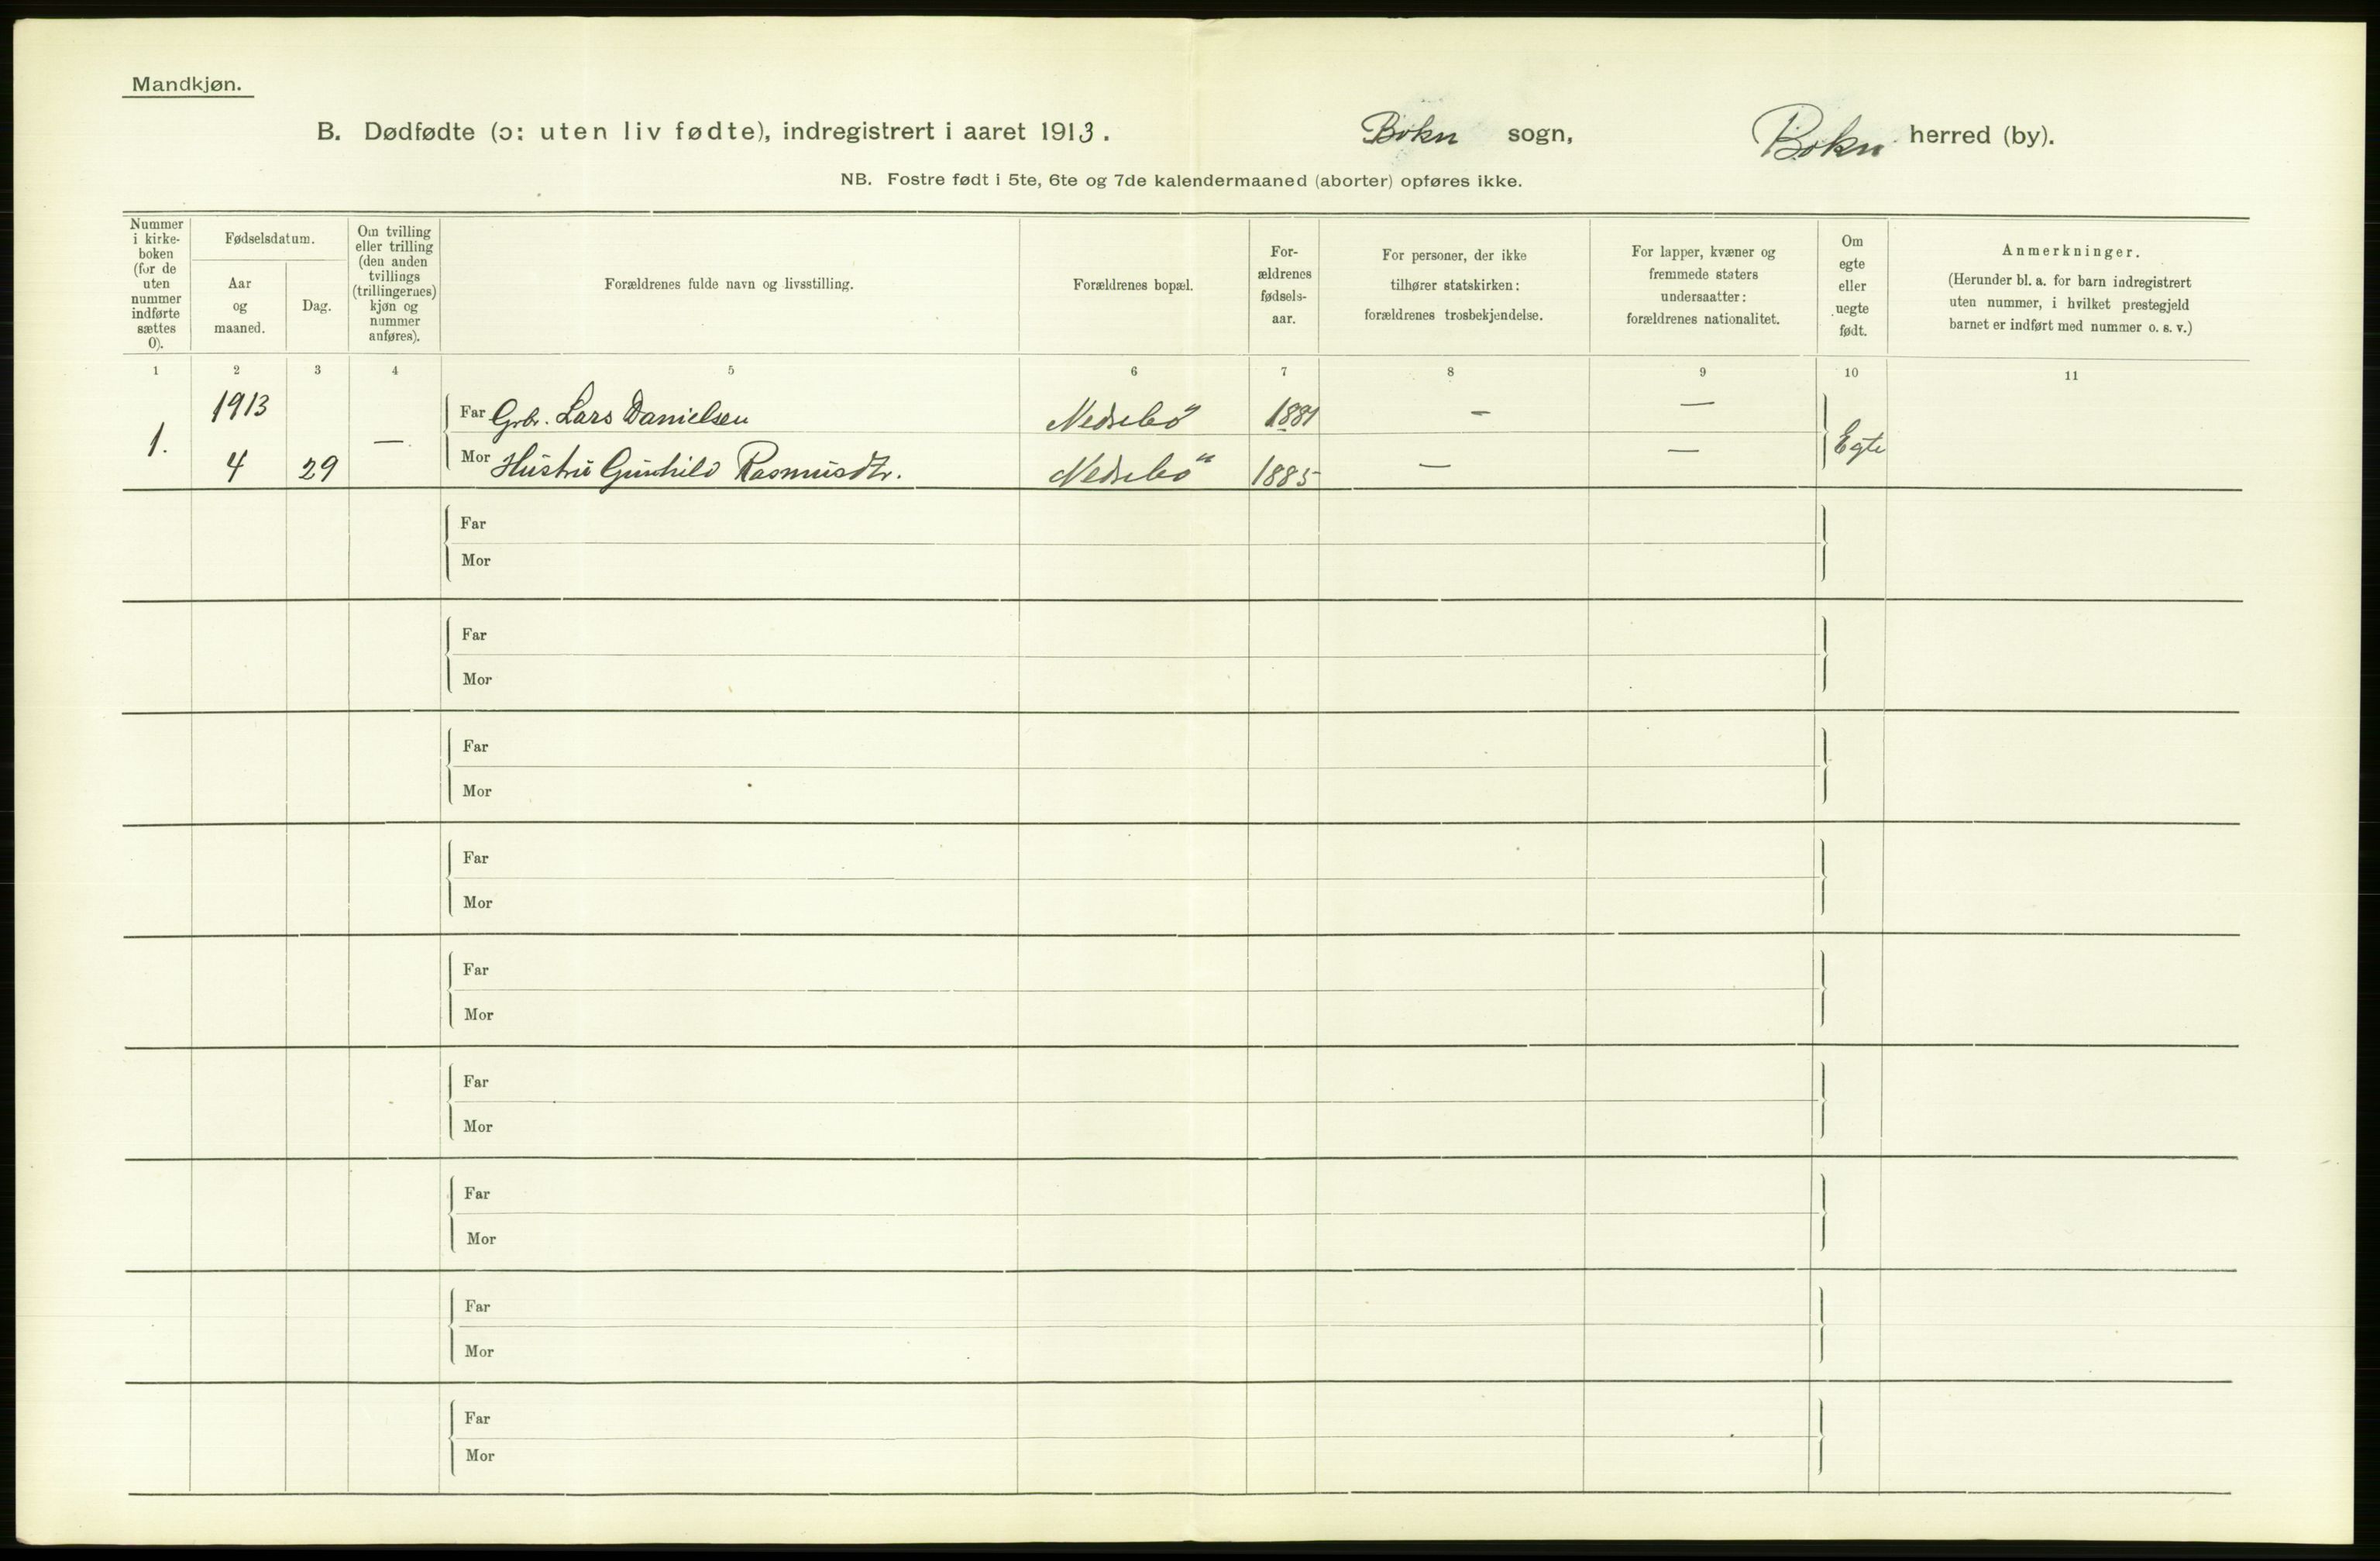 Mandkjøn.
B. Dødfødte (ɔ: uten liv fødte), indregistrert i aaret 1913. Bokn sogn, Bokn herred (by).
NB. Fostre født i 5te, 6te og 7de kalendermaaned (aborter) opføres ikke.
Nummer
i kirke-
boken
(for de
uten
nummer
indførte
sættes
0).
Fødselsdatum.
Aar
og
maaned.
Dag.
Om tvilling
eller trilling
(den anden
tvillings
(trillingernes)
kjøn og
nummer
anføres).
Forældrenes fulde navn og livsstilling.
Forældrenes bopæl.
For-
ældrenes
fødsels-
aar.
For personer, der ikke
tilhører statskirken:
forældrenes trosbekjendelse.
For lapper, kvæner og
fremmede staters
undersaatter:
forældrenes nationalitet.
Om
egte
eller
uegte
født.
Anmerkninger.
(Herunder bl. a. for barn indregistrert
uten nummer, i hvilket prestegjeld
barnet er indført med nummer o. s. v.)
1 2 3 4 5 6 7 8 9 10 11
1913 Far Grbr. Lars Danielsen Nedrebö 1881 – –
1. — Egte
4 29 Mor Hustru Gunhild Rasmusdtr. Nedrebö 1885 – –
Far
Mor
Far
Mor
Far
Mor
Far
Mor
Far
Mor
Far
Mor
Far
Mor
Far
Mor
Far
Mor